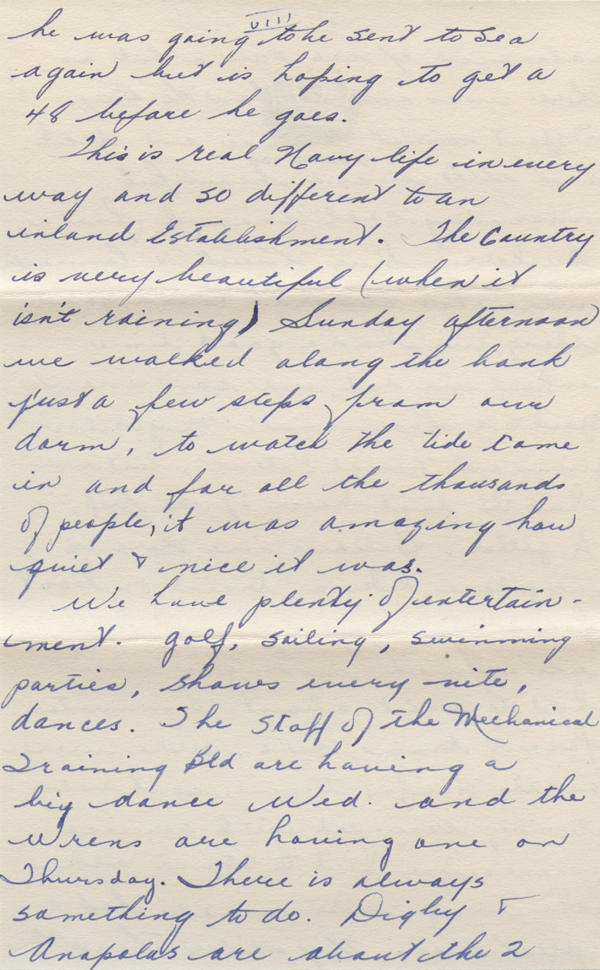 VIII
he was going to be sent to sea
again but is hoping to get a
48 before he goes.
This is real Navy life in every
way and so different to an
inland Establishment. The Country
is very beautiful (when it
isn't raining) Sunday afternoon
we walked along the bank
just a few steps from our
dorm, to watch the tide come
in and for all the thousands
of people, it was amazing how
quiet & nice it was.
We have plenty of entertain-
ment. golf, sailing, swimming
parties, shows every nite,
dances. The Staff of the Mechanical
Training Bld are having a
big dance Wed. and the
Wrens are having one on
Thursday. There is always
something to do. Digby &
Anapolas are about the 2